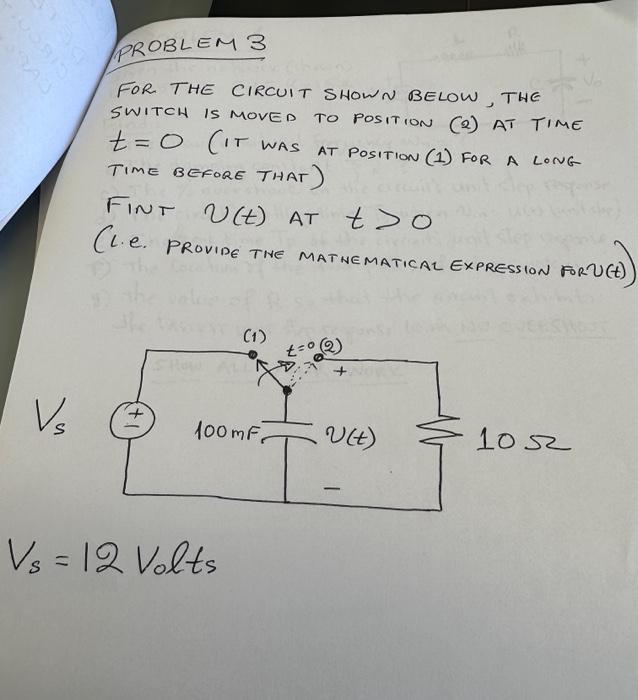 PROBLEM 3
FOR THE CIRCUIT SHOWN BELOW, THE
SWITCH IS MOVED TO POSITION (2) AT TIME
t = 0 (IT WAS AT POSITION (1) FOR A LONG
TIME BEFORE THAT)
FINT V(t) AT t > 0
(i.e. PROVIDE THE MATHEMATICAL EXPRESSION FOR V(t))
(1)
t=0 (2)
+
Vs
+
100mF
V(t)
10 Ω
−
Vs = 12 Volts